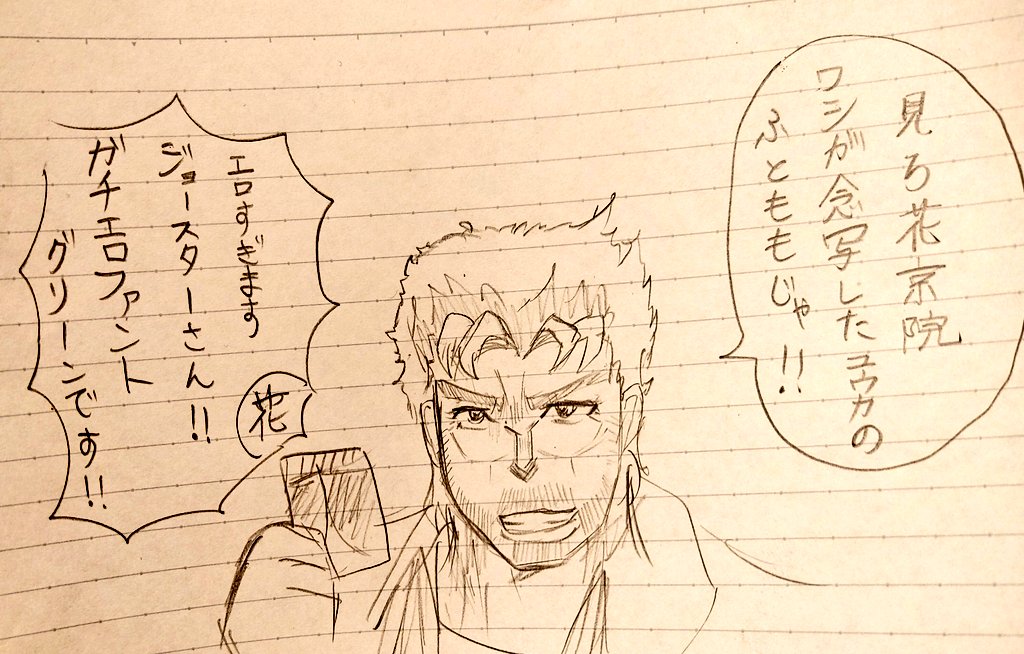 見ろ花京院
ワシが念写したユウカの
ふとももじゃ!!
エロすぎます
ジョースターさん!!
ガチエロファント
グリーンです!!
花